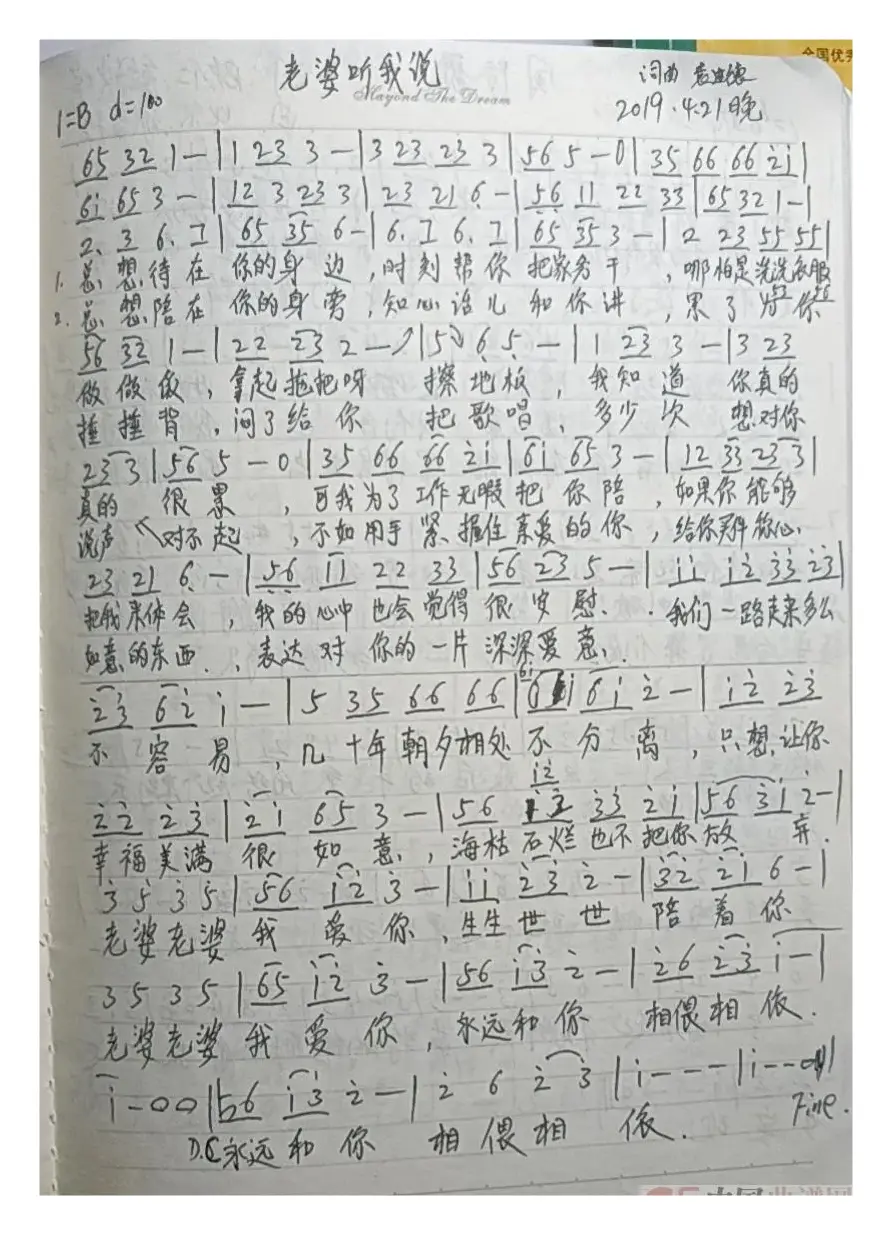 全国优秀
老婆听我说
Mayond The Dream
词曲
1=B d=100
2019.4.21晚
65 32 1 - | 1 23 3 - | 3 23 23 3 | 56 5 - 0 | 35 66 66 2̇1̇ |
61̇ 65 3 - | 12 3 23 3 | 23 21 6̣ - | 5̣6̣ 11 22 33 | 65 32 1 - |
2. 3 6. 1 | 65 35 6 - | 6. 1 6. 1 | 65 35 3 - | 2 23 55 55 |
1. 总想待在 你的身边 , 时刻帮你 把家务干 , 哪怕是洗洗衣服
2. 总想陪在 你的身旁 , 知心话儿 和你讲 , 累了 为你
56 32 1 - | 22 23 2 - | 5 6̣ 5̣ - | 1 23 3 - | 3 23
做做饭 , 拿起拖把呀 擦地板 , 我知道 你真的
捶捶背 , 闷了给你 把歌唱 , 多少次 想对你
23 3 | 56 5 - 0 | 35 66 66 2̇1̇ | 61̇ 65 3 - | 12 33 23 3 |
真的 很累 , 可我为了工作无暇把你陪 , 如果你能够
说声 对不起 , 不如用手紧握住亲爱的你 , 给你买件称心
23 21 6̣ - | 5̣6̣ 11 22 33 | 56 23 5 - | 1̇1̇ 1̇2̇ 3̇3̇ 2̇3̇ |
把我来体会 , 我的心中也会觉得很安慰 . . 我们一路走来多么
如意的东西 . , 表达对你的一片深深爱意 .
2̇3̇ 62̇ 1̇ - | 5 35 66 66 | 61̇ 61̇ 2̇ - | 1̇2̇ 2̇3̇
不容易 , 几十年朝夕相处不分离 , 只想让你
1̇2̇
2̇2̇ 2̇3̇ | 2̇1̇ 65 3 - | 56 1̇2̇ 3̇3̇ 2̇1̇ | 56 3̇1̇ 2̇ - |
幸福美满 很如意 , 海枯石烂也不把你放弃 .
3̇ 5̇ 3̇ 5̇ | 56 1̇2̇ 3̇ - | 1̇1̇ 2̇3̇ 2̇ - | 3̇2̇ 2̇1̇ 6 - |
老婆老婆我爱你 , 生生世世 陪着你
3 5 3 5 | 65 1̇2̇ 3̇ - | 56 1̇3̇ 2̇ - | 2̇6 2̇3̇ 1̇ - |
老婆老婆我爱你 , 永远和你 相偎相依 .
1̇ - 0 0 | 56 1̇3̇ 2̇ - | 2̇ 6 2̇ 3̇ | 1̇ - - - | 1̇ - - 0 |
D.C. 永远和你 相偎相依 . Fine.